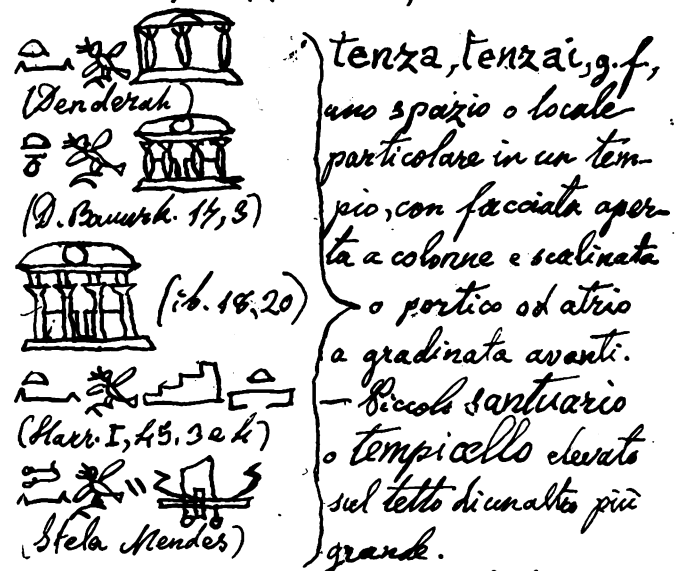 (Denderah)
(D. Bauurk. 14, 3)
(ib. 18, 20)
(Harr. I, 45. 3 e 4)
(Stela Mendes)
tenza, tenzai, g. f,
uno spazio o locale
particolare in un tem-
pio, con facciata aper-
ta a colonne e scalinata
o portico od atrio
a gradinata avanti.
— Piccolo santuario
o tempicello elevato
sul tetto di un altro più
grande.